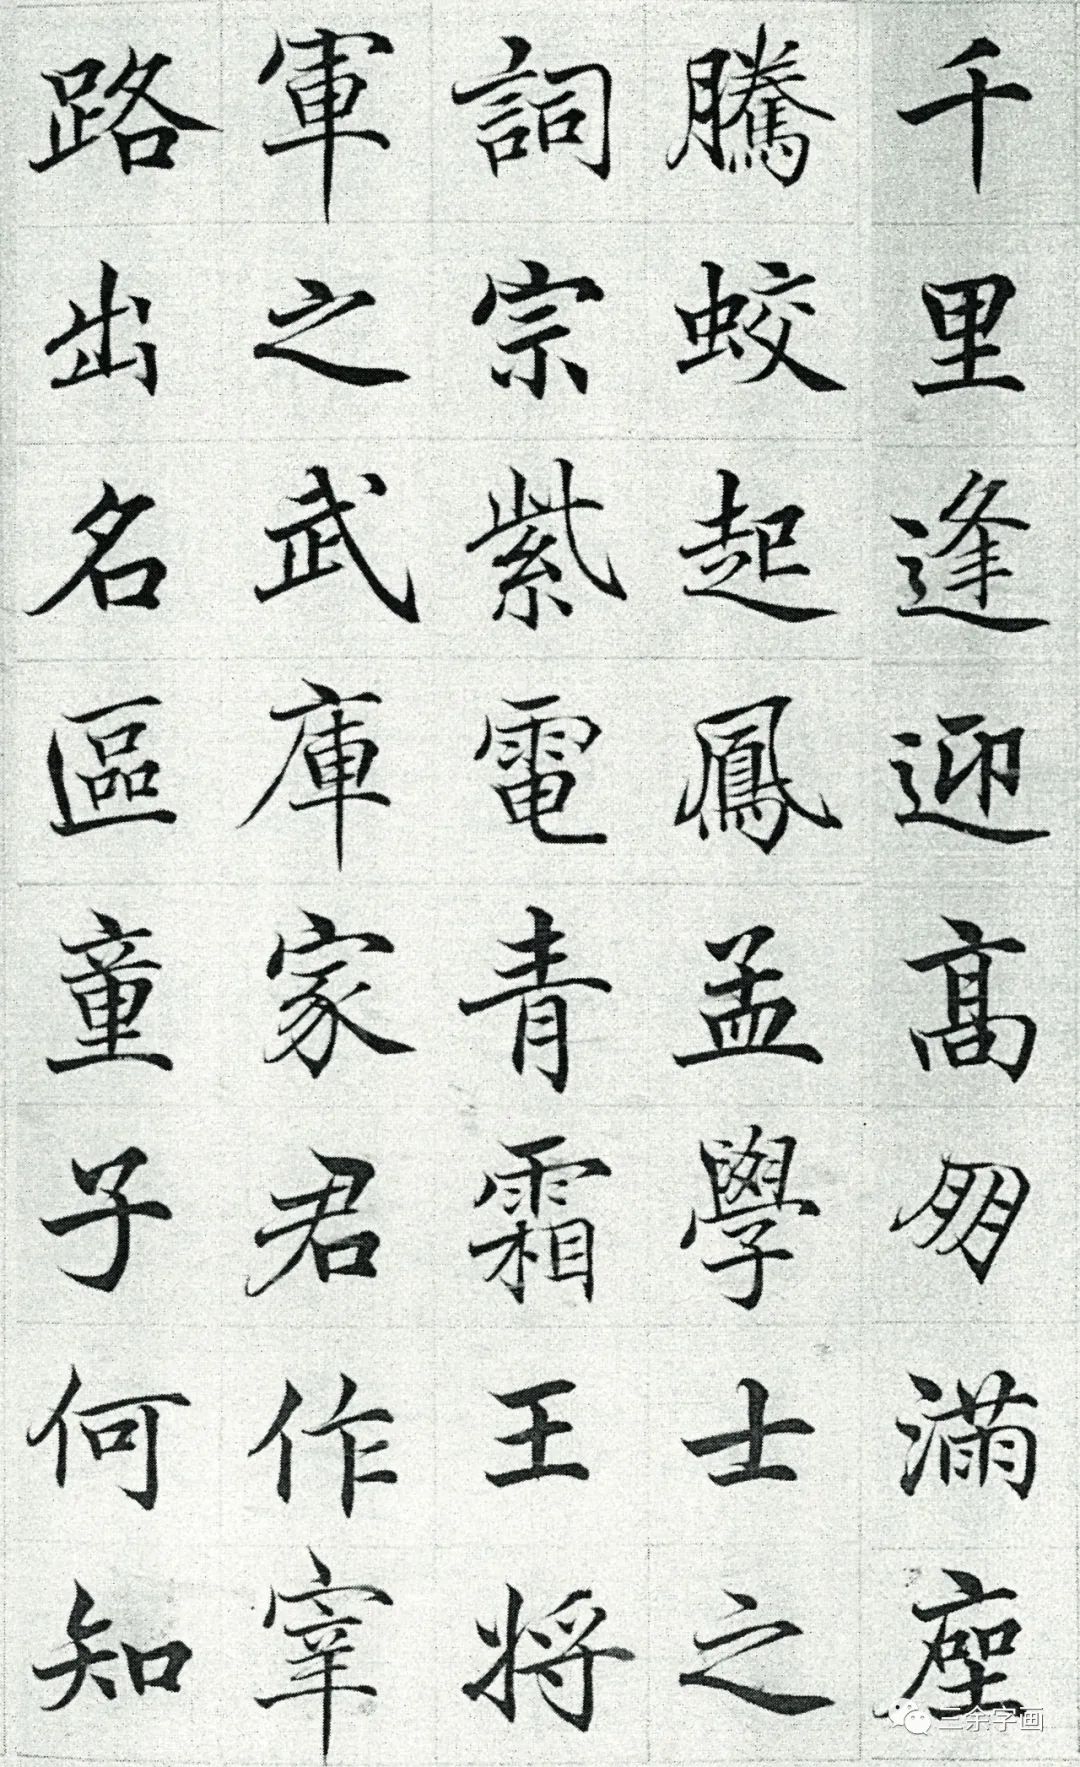 千里逢迎高朋滿座
騰蛟起鳳孟學士之
詞宗紫電青霜王將
軍之武庫家君作宰
路出名區童子何知
三余字画